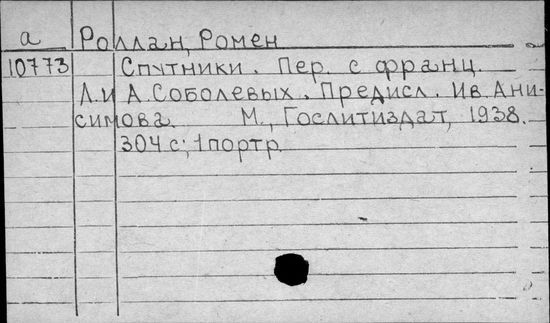 а Роллан, Ромен
10773 Спутники. Пер. с франц.
Л. и А. Соболевых. Предисл. Ив. Ани-
симова. М., Гослитиздат, 1938.
304 с; 1 портр.